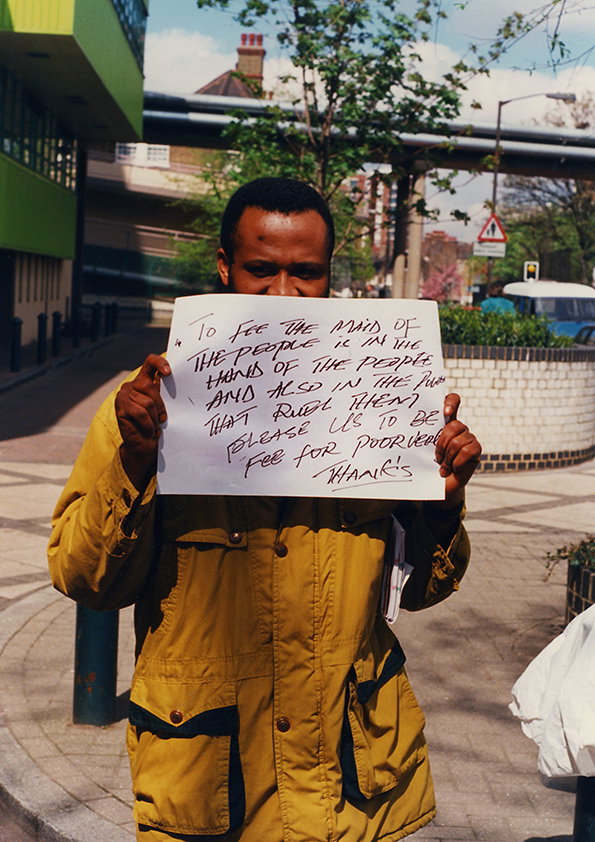 To FEE THE MAID OF
THE PEOPLE is IN THE
HAND OF THE PEOPLE
AND ALSO IN THE
THAT RUEL THEM
PLEASE US TO BE
FEE FOR POOR VERE
THANK'S